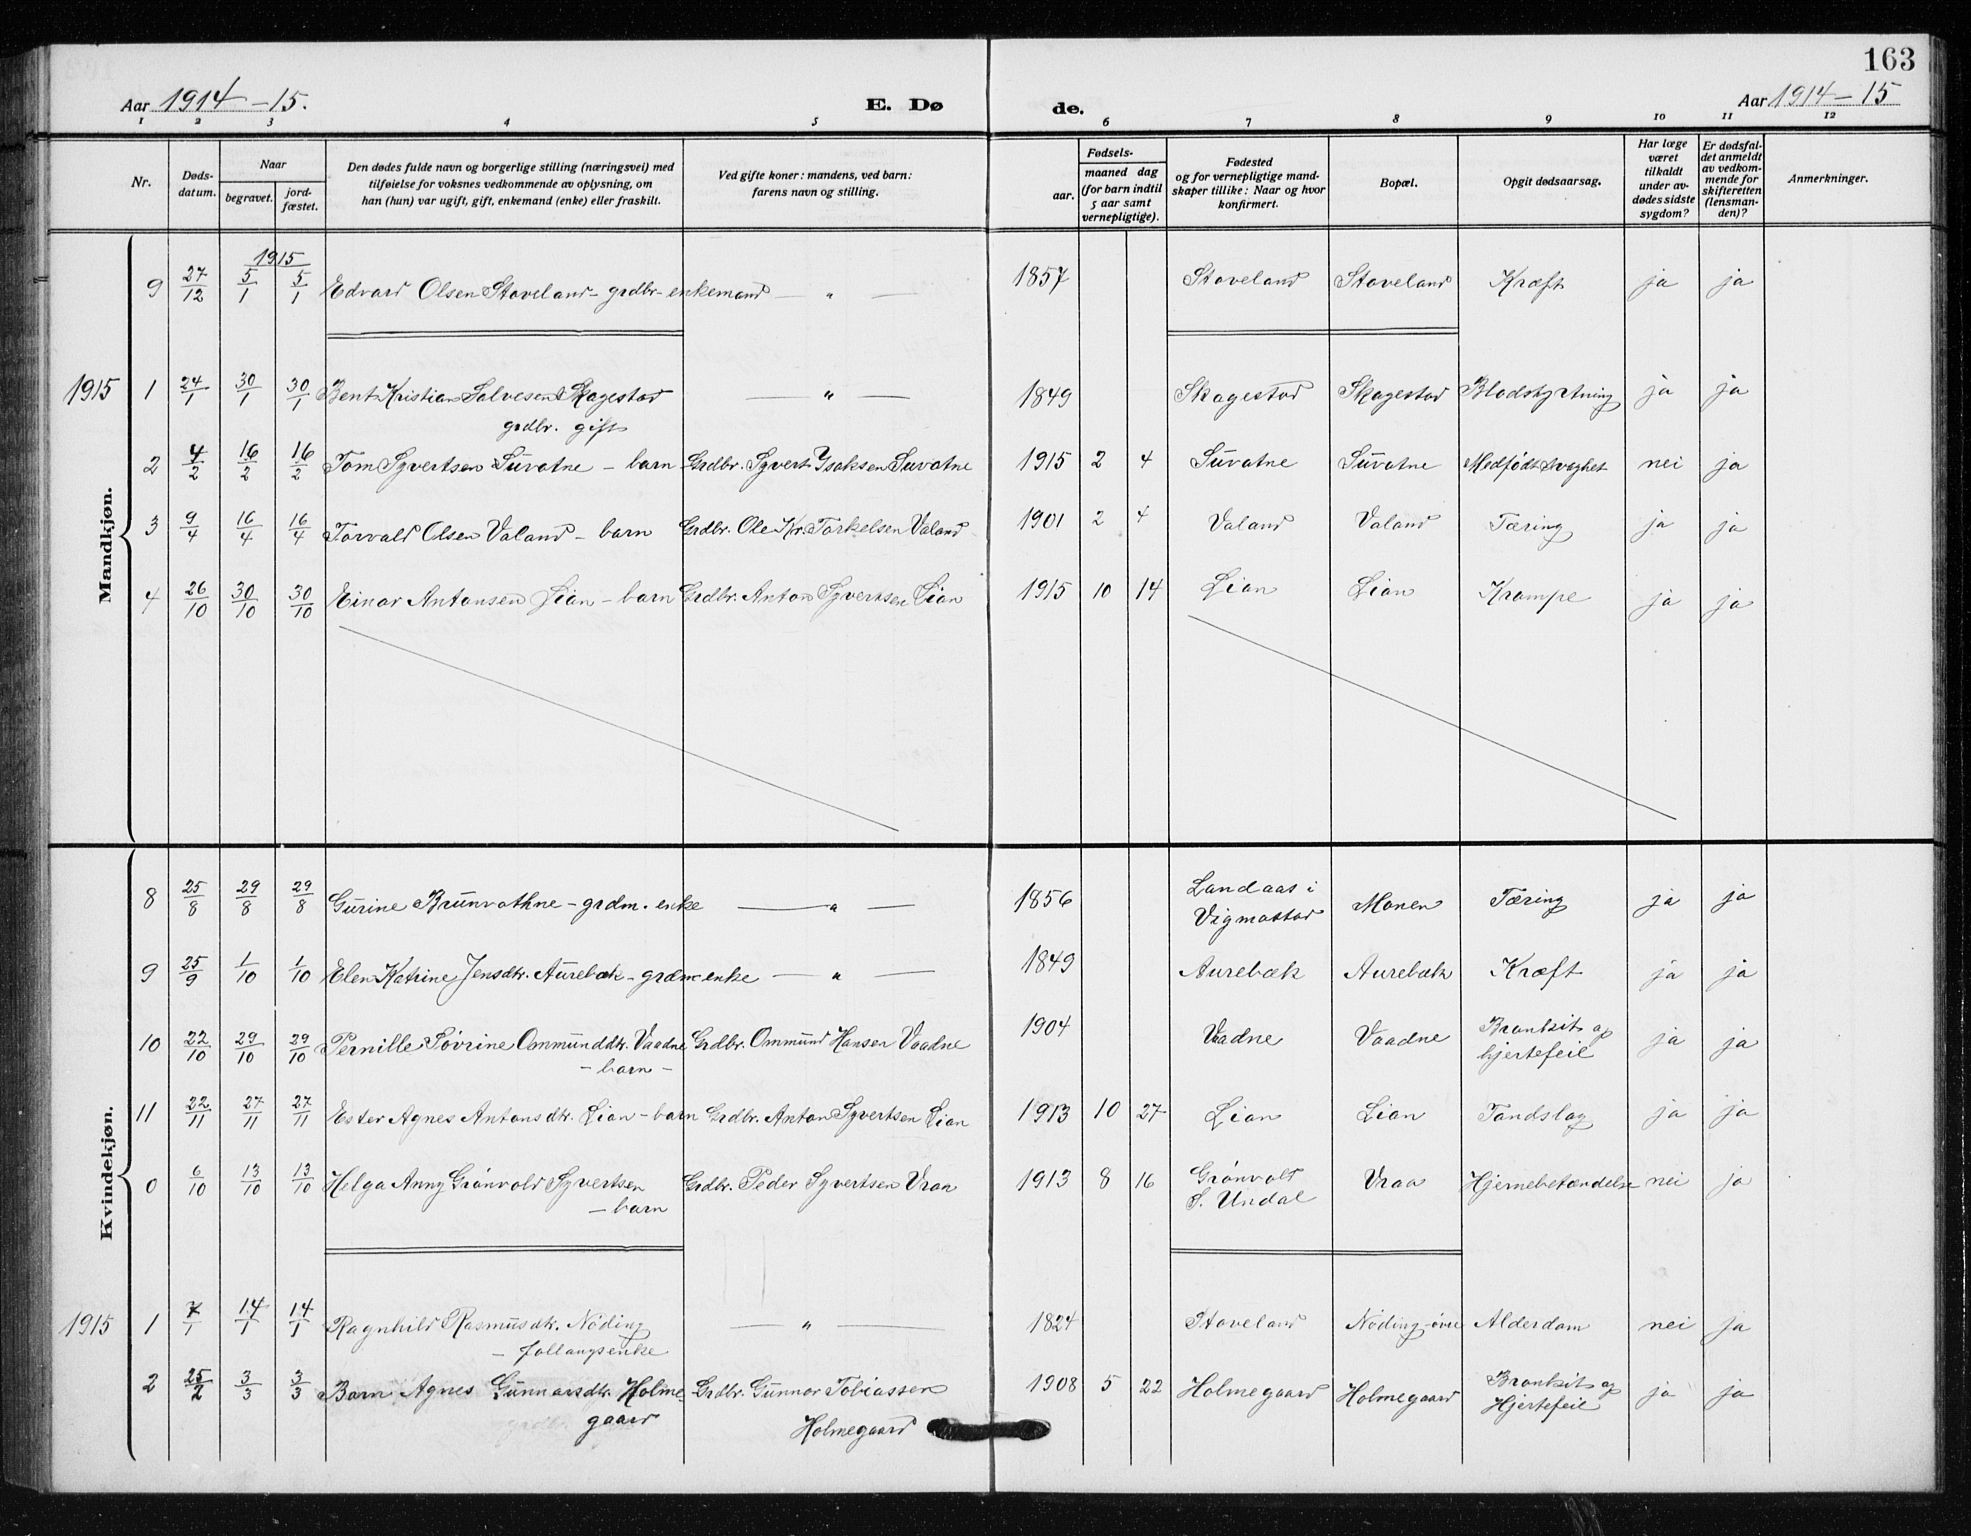 163
Aar 1914-15. E. Dø de. Aar 1914-15
1 2 3 4 5 6 7 8 9 10 11 12
Nr. Døds-datum. Naar begravet. jord-fæstet. Den dødes fulde navn og borgerlige stilling (næringsvei) med tilføielse for voksnes vedkommende av oplysning, om han (hun) var ugift, gift, enkemand (enke) eller fraskilt. Ved gifte koner: mandens, ved barn: farens navn og stilling. Fødsels- aar. maaned dag (for barn indtil 5 aar samt vernepligtige). Fødested og for vernepligtige mand-skaper tillike: Naar og hvor konfirmert. Bopæl. Opgit dødsaarsag. Har læge været tilkaldt under av-dødes sidste sygdom? Er dødsfal-det anmeldt av vedkom-mende for skifteretten (lensman-den)? Anmerkninger.
Mandkjøn.
1915
9 27/12 5/1 5/1 Edvard Olsen Stoveland - grdbr - enkemand — " — 1857 Stoveland Stoveland Kræft ja ja
1915 1 24/1 30/1 30/1 Bent Kristian Salvesen Skagestad — " — 1849 Skagestad Skagestad Blodstyrtning ja ja
grdbr. gift
2 4/2 16/2 16/2 Tom Syvertsen Suvatne - barn Grdbr. Syvert Ysaksen Suvatne 1915 2 4 Suvatne Suvatne Medfødt svaghet nei ja
3 9/4 16/4 16/4 Torvald Olsen Valand - barn Grdbr. Ole Kr. Torkelsen Valand 1901 2 4 Valand Valand Tæring ja ja
4 26/10 30/10 30/10 Einar Antonsen Lian - barn Grdbr. Anton Syvertsen Lian 1915 10 14 Lian Lian Krampe ja ja
Kvindekjøn.
8 25/8 29/8 29/8 Gurine Brunvathne - grdm. enke — " — 1856 Landaas i Vigmostad Monen Tæring ja ja
9 25/9 1/10 1/10 Elen Katrine Jensdtr. Aurebæk - grdm enke — " — 1849 Aurebæk Aurebæk Kræft ja ja
10 22/10 29/10 29/10 Pernille Søvrine Ommunddtr. Vaadne Grdbr. Ommund Hansen Vaadne 1904 Vaadne Vaadne Bronkit og hjertefeil ja ja
- barn -
11 22/11 27/11 27/11 Ester Agnes Antonsdtr. Lian - barn Grdbr. Anton Syvertsen Lian 1913 10 27 Lian Lian Tandslag ja ja
0 6/10 13/10 13/10 Helga Anny Grønvold Syvertsen Grdbr. Peder Syvertsen Vraa 1913 8 16 Grønvold S. Undal Vraa Hjernebetændelse nei ja
- barn
1915 1 7/1 14/1 14/1 Ragnhild Rasmusdtr. Nøding — " — 1824 Stoveland Nøding øvre Alderdom nei ja
- follaugsenke
2 25/2 3/3 3/3 Barn Agnes Gunnarsdtr. Holme- Grdbr. Gunnar Tobiassen 1908 5 22 Holmegaard Holmegaard Bronkit og Hjertefeil ja ja
gaard Holmegaard